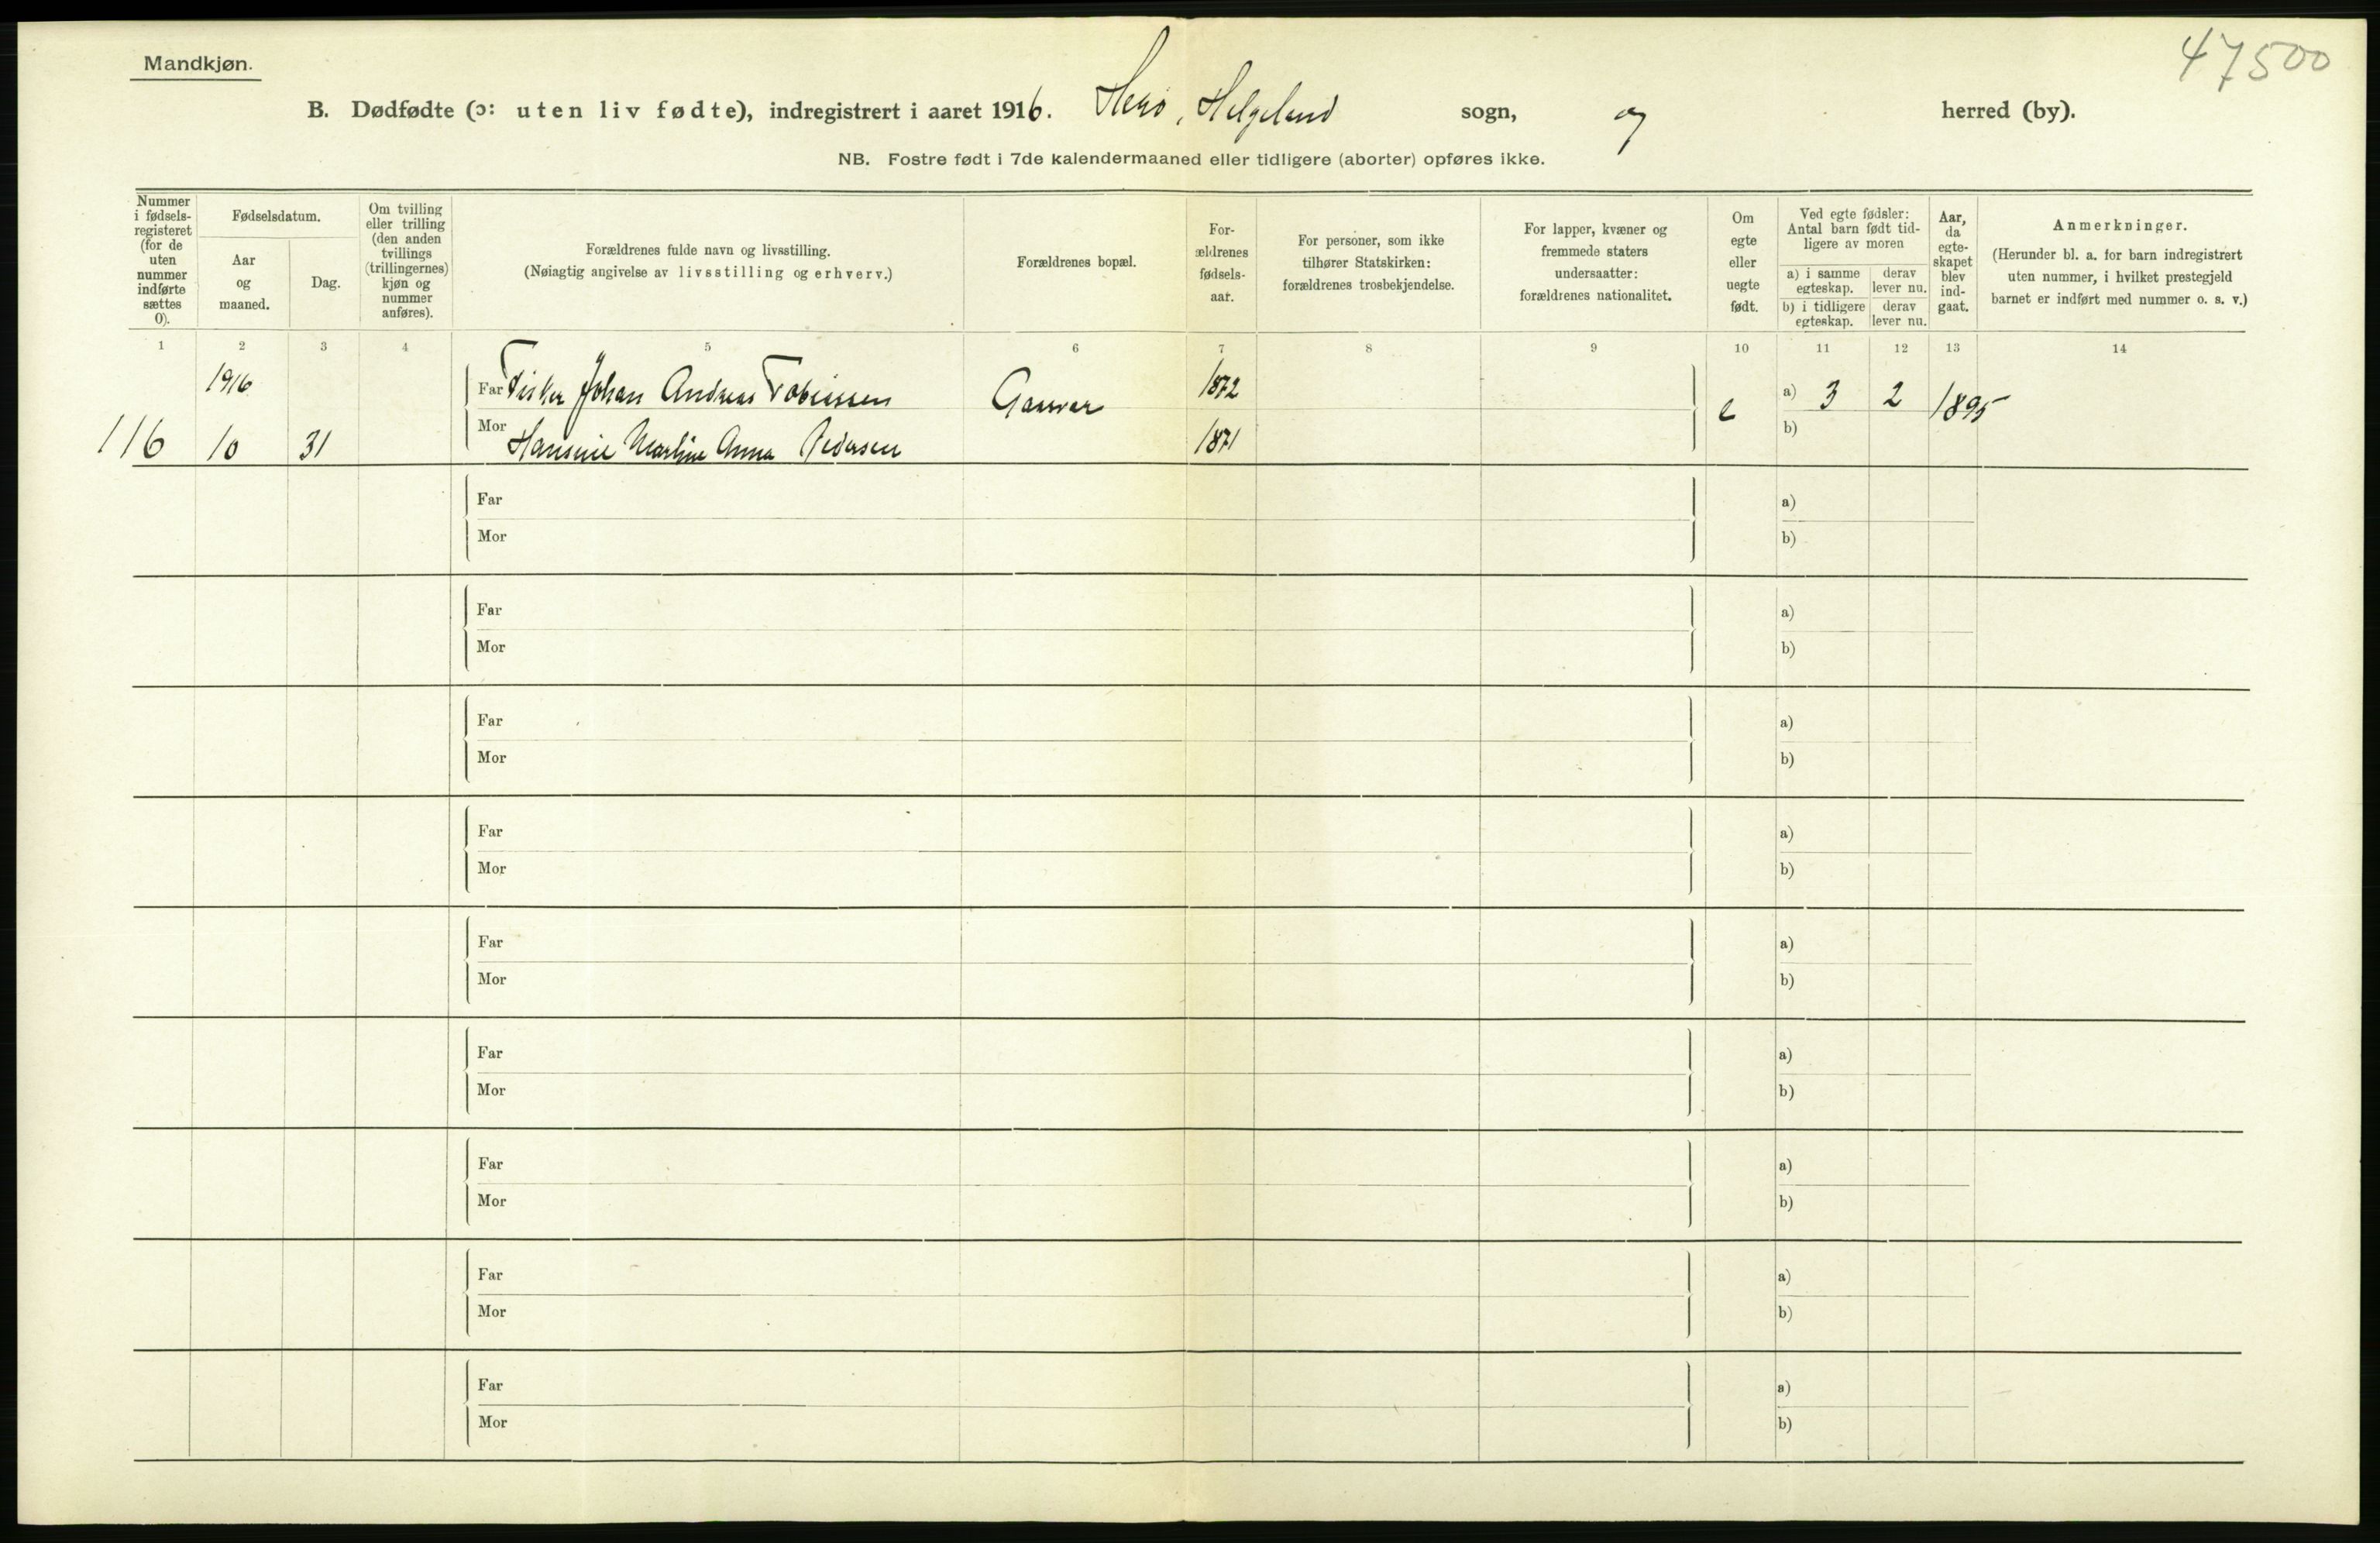 Mandkjøn.
47500
B. Dødfødte (ɔ: uten liv fødte), indregistrert i aaret 1916. Herø, Helgeland sogn, og herred (by).
NB. Fostre født i 7de kalendermaaned eller tidligere (aborter) opføres ikke.
Nummer i fødsels-registeret (for de uten nummer indførte sættes 0).
Fødselsdatum.
Aar og maaned.
Dag.
Om tvilling eller trilling (den anden tvillings (trillingernes) kjøn og nummer anføres).
Forældrenes fulde navn og livsstilling.
(Nøiagtig angivelse av livsstilling og erhverv.)
Forældrenes bopæl.
For-ældrenes fødsels-aar.
For personer, som ikke tilhører Statskirken: forældrenes trosbekjendelse.
For lapper, kvæner og fremmede staters undersaatter: forældrenes nationalitet.
Om egte eller uegte født.
Ved egte fødsler: Antal barn født tid-ligere av moren
a) i samme egteskap.
derav lever nu.
b) i tidligere egteskap.
derav lever nu.
Aar, da egte-skapet blev ind-gaat.
Anmerkninger.
(Herunder bl. a. for barn indregistrert uten nummer, i hvilket prestegjeld barnet er indført med nummer o. s. v.)
1 2 3 4 5 6 7 8 9 10 11 12 13 14
1916 Far Fisker Johan Andreas Tobiassen Gaasvær 1872 e a) 3 2 1895
116 10 31 Mor Hansine Martine Anna Pedersen 1871 b)
Far a)
Mor b)
Far a)
Mor b)
Far a)
Mor b)
Far a)
Mor b)
Far a)
Mor b)
Far a)
Mor b)
Far a)
Mor b)
Far a)
Mor b)
Far a)
Mor b)